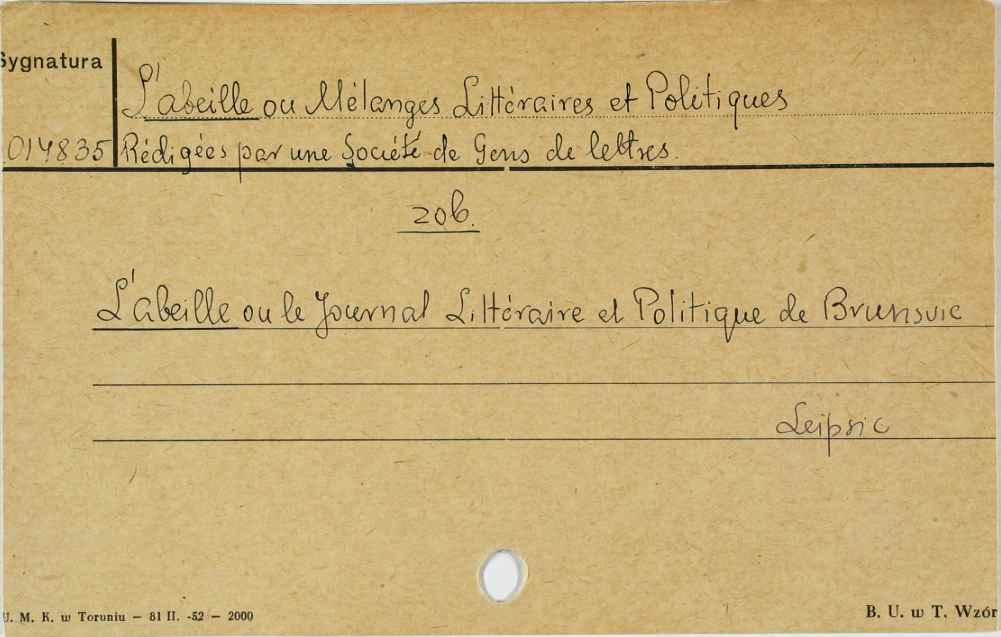 Sygnatura
L'abeille ou Mélanges Littéraires et Politiques
014835 Rédigées par une Société de Gens de lettres.
zob.
L'abeille ou le Journal Littéraire et Politique de Brunsvic
Leipsic
U. M. K. w Toruniu — 81 II. -52 — 2000
B. U. w T. Wzór